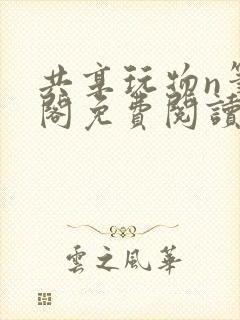 共享玩物n筆
閣免費閱讀
雲之風華